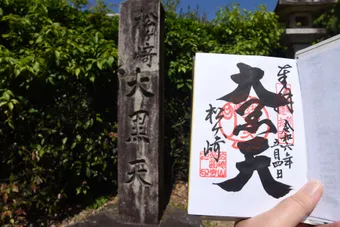 松ヶ崎大黒天
大黒天
松ヶ崎
令和六年
五月四日